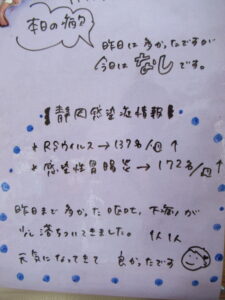 本日の病気
昨日は多かったですが
今日はなしです。
【静岡感染症情報】
* RSウイルス → 137名/週 ↑
* 感染性胃腸炎 → 172名/週 ↑
昨日まで多かった嘔吐、下痢が
少し落ちついてきました。
元気になってきて 良かったです